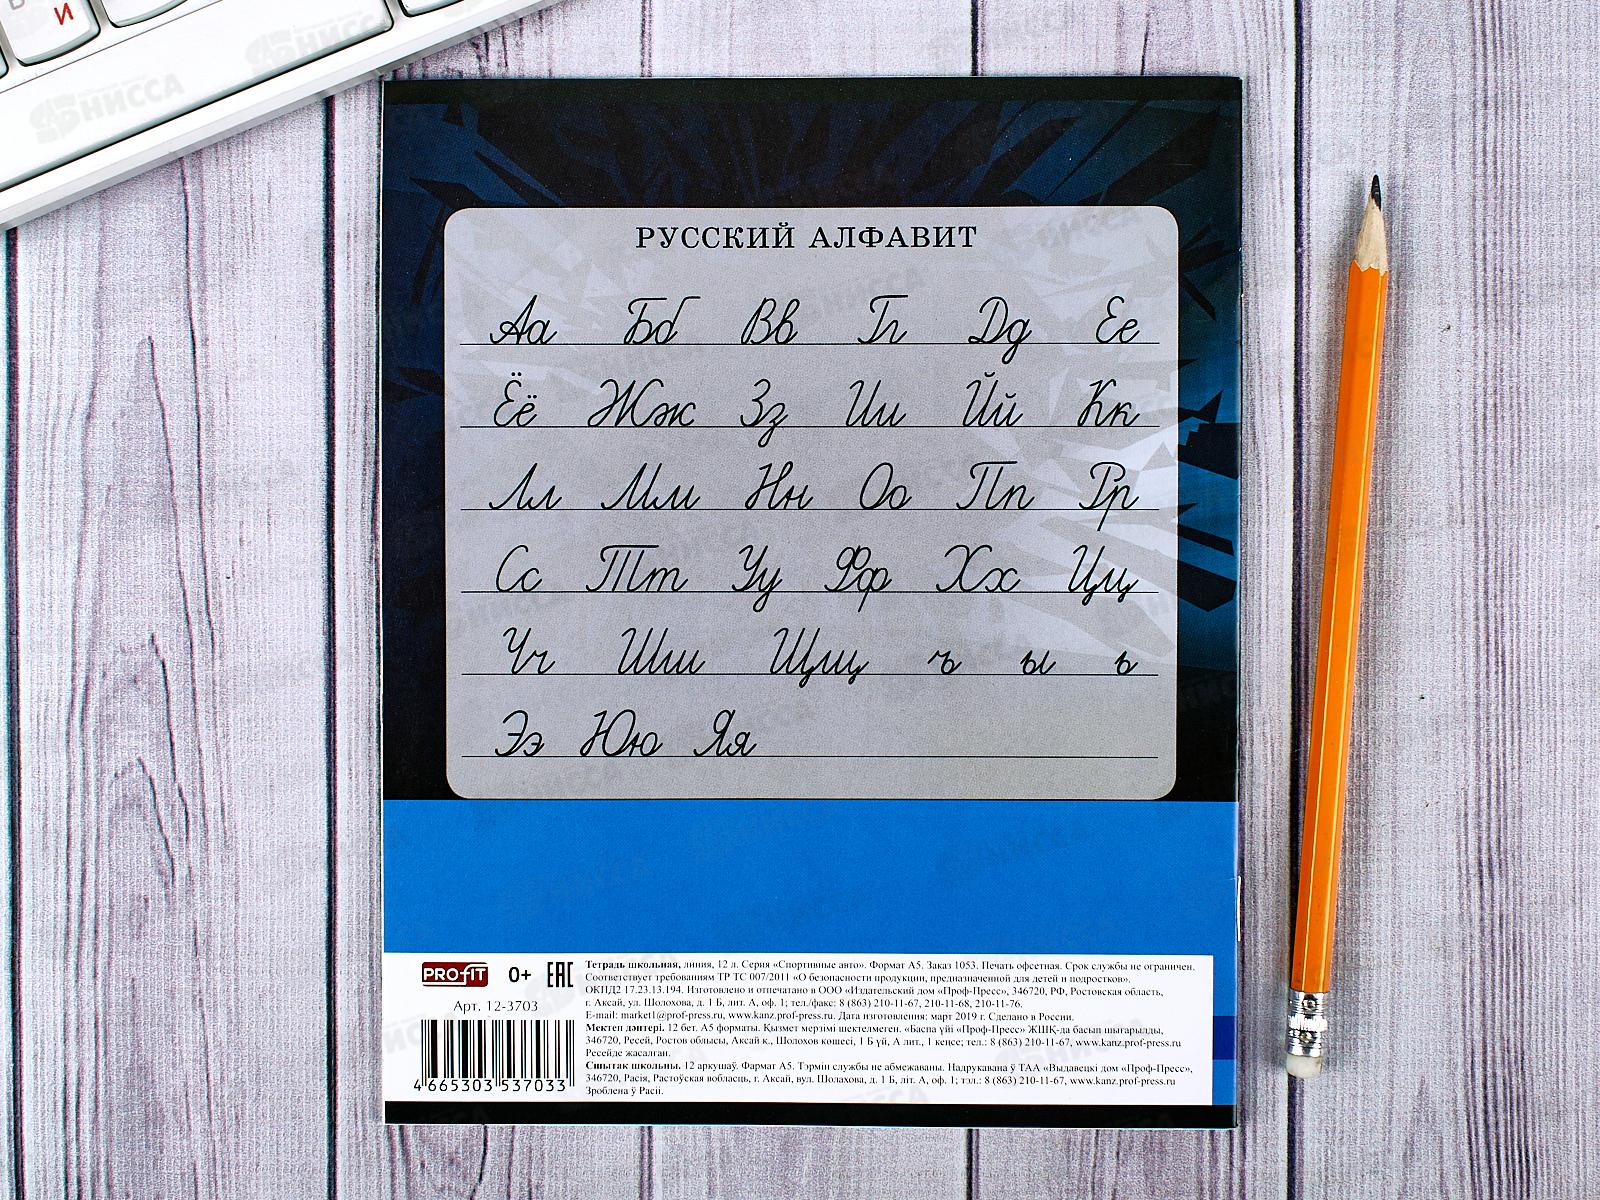 И
РУССКИЙ АЛФАВИТ
Аа Бб Вв Гг Дд Ее
Ёё Жж Зз Ии Йй Кк
Лл Мм Нн Оо Пп Рр
Сс Тт Уу Фф Хх Цц
Чч Шш Щщ ъ ы ь
Ээ Юю Яя
PROFIT 0+ EAC
Арт. 12-3703
4 665303 537033
Тетрадь школьная, линия, 12 л. Серия «Спортивные авто». Формат А5. Заказ 1053. Печать офсетная. Срок службы не ограничен.
Соответствует требованиям ТР ТС 007/2011 «О безопасности продукции, предназначенной для детей и подростков».
ОКПД2 17.23.13.194. Изготовлено и отпечатано в ООО «Издательский дом «Проф-Пресс», 346720, РФ, Ростовская область,
г. Аксай, ул. Шолохова, д. 1 Б, лит. А, оф. 1; тел./факс: 8 (863) 210-11-67, 210-11-68, 210-11-76.
E-mail: market1@prof-press.ru, www.kanz.prof-press.ru. Дата изготовления: март 2019 г. Сделано в России.
Мектеп дәптері. 12 бет. А5 форматы. Қызмет мерзімі шектелмеген. «Баспа үйі «Проф-Пресс» ЖШҚ-да басып шығарылды,
346720, Ресей, Ростов облысы, Аксай қ., Шолохов көшесі, 1 Б үй, А лит., 1 кеңсе; тел.: 8 (863) 210-11-67, www.kanz.prof-press.ru
Ресейде жасалған.
Сшытак школьны. 12 аркушаў. Фармат А5. Тэрмін службы не абмежаваны. Надрукавана ў ТАА «Выдавецкі дом «Проф-Пресс»,
346720, Расія, Растоўская вобласць, г. Аксай, вул. Шолахова, д. 1 Б, літ. А, оф. 1; тэл.: 8 (863) 210-11-67, www.kanz.prof-press.ru
Зроблена ў Расіі.
НИССА